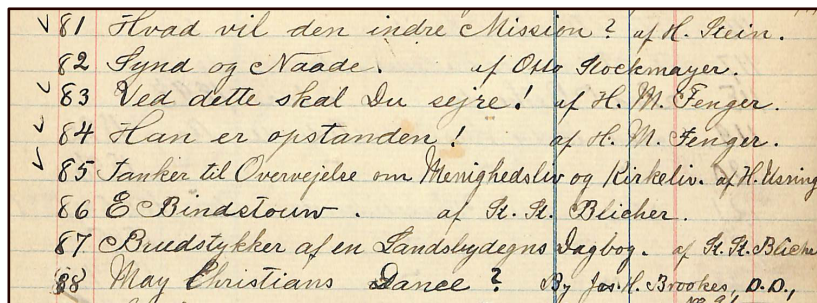 81 Hvad vil den indre Mission? af H. Stein.
82 Synd og Naade. af Otto Stockmayer.
83 Ved dette skal Du sejre! af H. M. Fenger.
84 Han er opstanden! af H. M. Fenger.
85 Tanker til Overvejelse om Menighedsliv og Kirkeliv. af H. Ussing
86 E Bindstouw. af St. St. Blicher.
87 Brudstykker af en Landsbydegns Dagbog. af St. St. Bliche
88 May Christians Dance? By Jas. H. Brookes, D.D.,